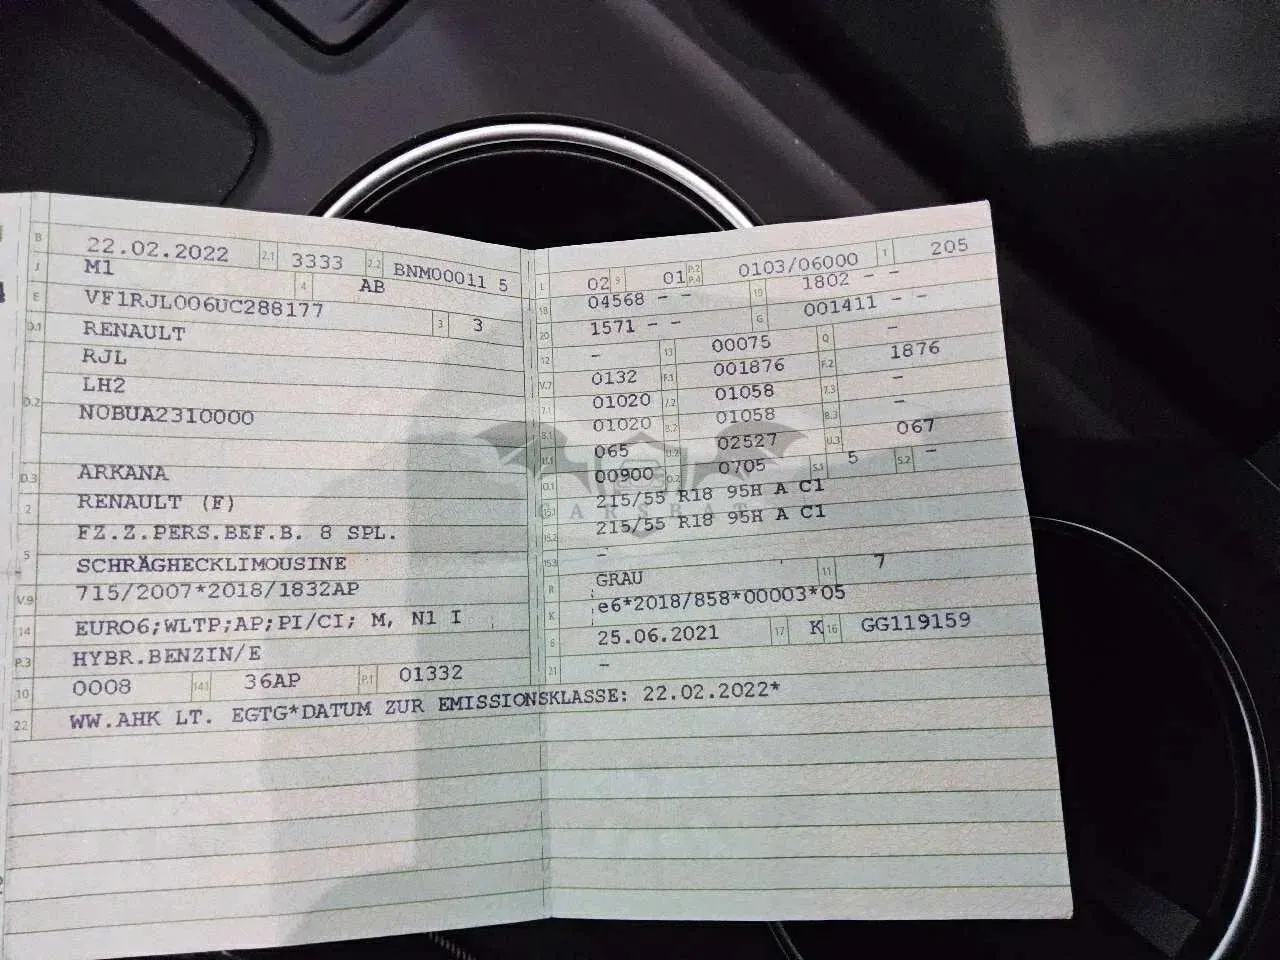 B 22.02.2022 2.1 3333 2.2 BNM00011 5
J M1 4 AB
E VF1RJL006UC288177 3 3
D.1 RENAULT
RJL
D.2 LH2
N0BUA2310000
D.3 ARKANA
2 RENAULT (F)
FZ.Z.PERS.BEF.B. 8 SPL.
5 SCHRÄGHECKLIMOUSINE
V.9 715/2007*2018/1832AP
14 EURO6;WLTP;AP;PI/CI; M, N1 I
P.3 HYBR.BENZIN/E
10 0008 14.1 36AP P.1 01332
22 WW.AHK LT. EGTG*DATUM ZUR EMISSIONSKLASSE: 22.02.2022*
L 02 9 01 P.2 P.4 0103/06000 T 205
18 04568 - - 19 1802 - -
20 1571 - - G 001411 - -
12 - 13 00075 Q -
V.7 0132 F.1 001876 F.2 1876
7.1 01020 7.2 01058 7.3 -
8.1 01020 8.2 01058 8.3 -
U.1 065 U.2 02527 U.3 067
O.1 00900 O.2 0705 S.1 5 S.2 -
15.1 215/55 R18 95H A C1
15.2 215/55 R18 95H A C1
15.3 -
R GRAU 11 7
K e6*2018/858*00003*05
6 25.06.2021 17 K 16 GG119159
21 -
CARSBAT